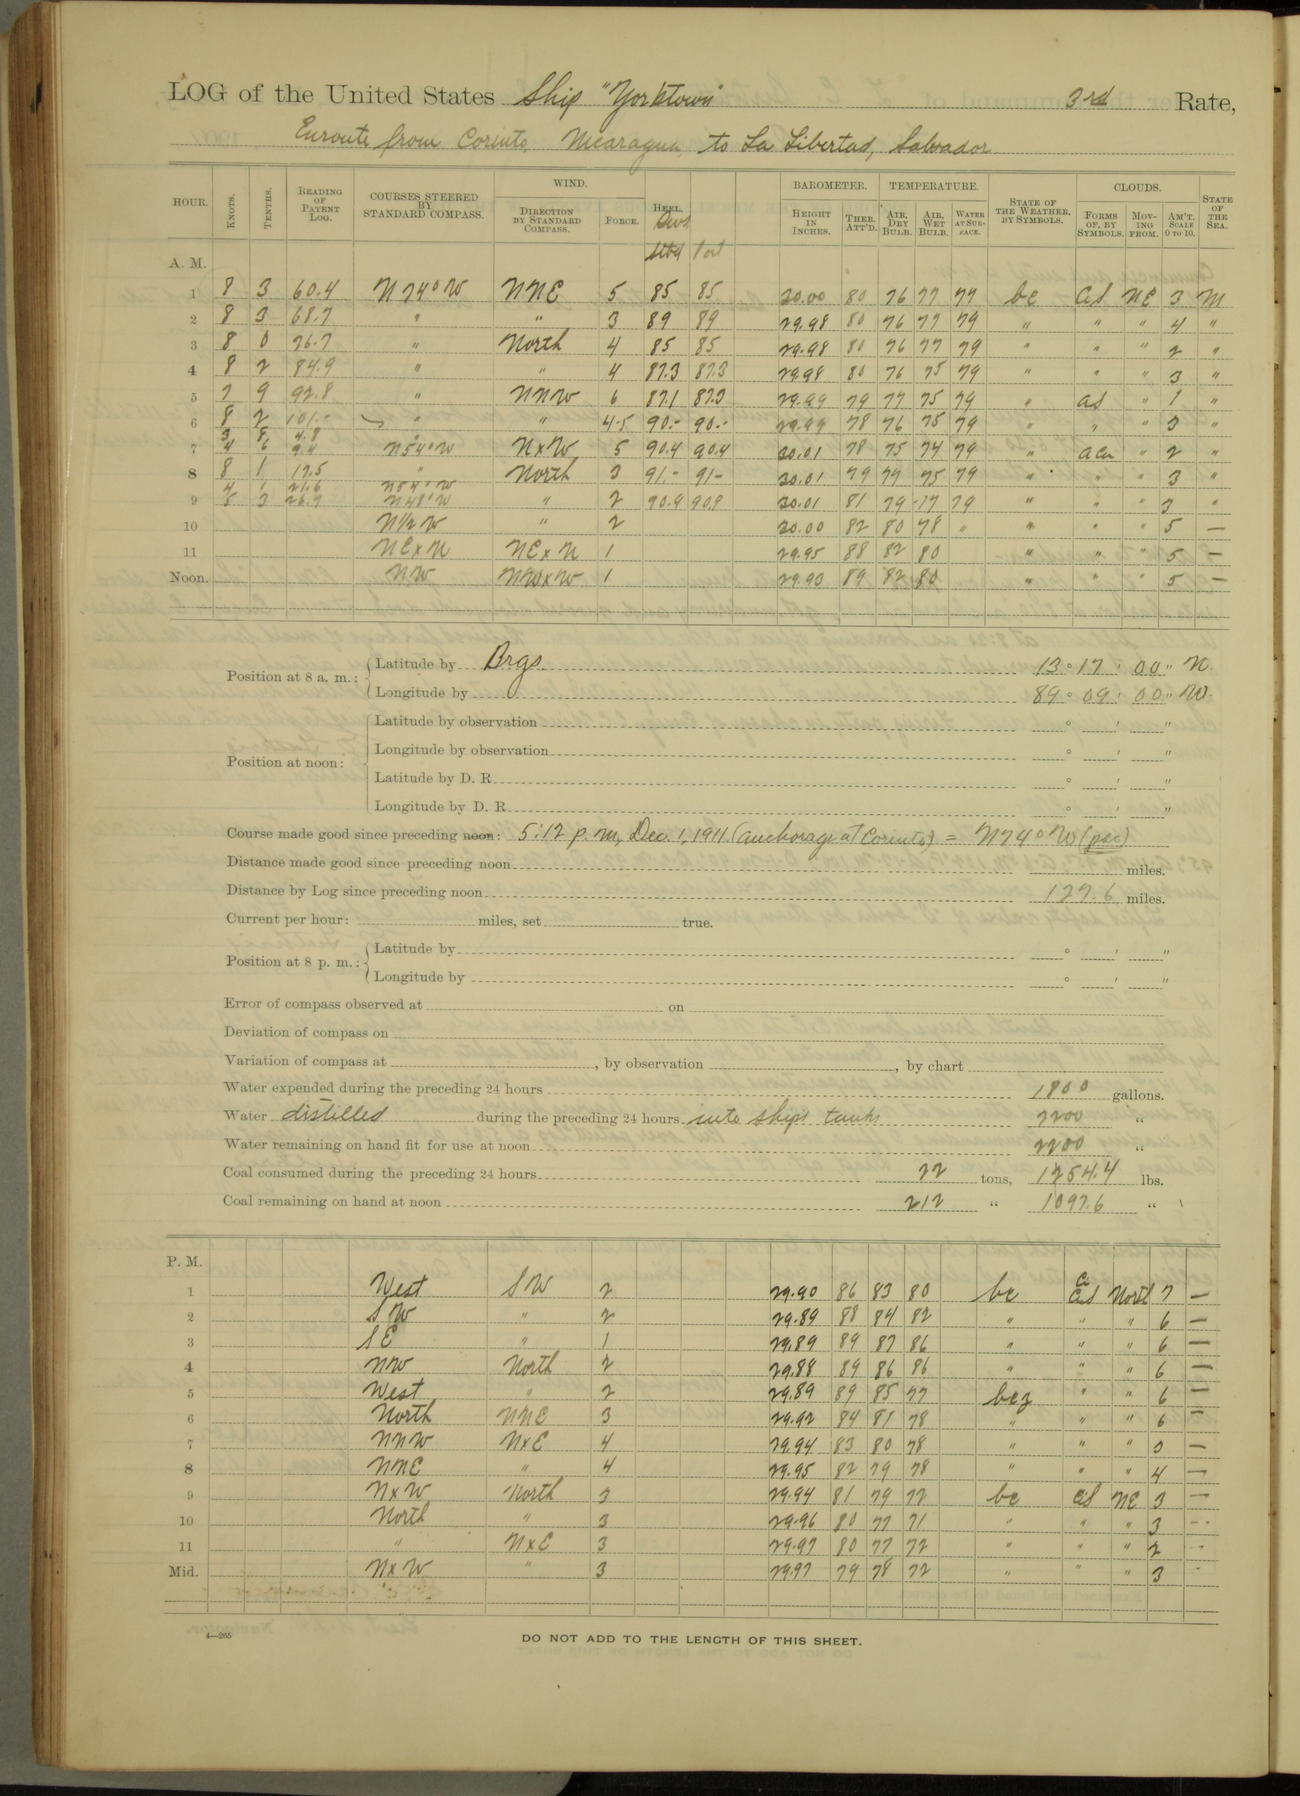 LOG of the United States Ship "Yorktown" 3rd Rate,
Enroute from Corinto, Nicaragua, to La Libertad, Salvador
HOUR. KNOTS. TENTHS. READING OF PATENT LOG. COURSES STEERED BY STANDARD COMPASS. WIND. DIRECTION BY STANDARD COMPASS. FORCE. HEEL. Revs Stbd Port BAROMETER. HEIGHT IN INCHES. THER. ATT'D. TEMPERATURE. AIR, DRY BULB. AIR, WET BULB. WATER AT SURFACE. STATE OF THE WEATHER, BY SYMBOLS. CLOUDS. FORMS OF, BY SYMBOLS. MOVING FROM. AM'T. SCALE 0 TO 10. STATE OF THE SEA.
A. M.
1 8 3 60.4 N 74° W NNE 5 85 85 30.00 80 76 77 77 bc NE 3 M
2 8 3 68.7 " " 3 89 89 29.98 80 76 77 79 " " " 4 "
3 8 0 76.7 " North 4 85 85 29.98 80 76 77 79 " " " 2 "
4 8 2 84.9 " " 4 87.3 87.3 29.98 80 76 75 79 " " " 3 "
5 7 9 92.8 " NNW 6 87.1 87.3 29.99 79 77 75 79 " " 1 "
6 8 2 101.- " " 4-5 90.- 90.- 29.99 78 76 75 79 " " " 3 "
3 8 4.8
7 4 6 9.4 N 54° W NxW 5 90.4 90.4 30.01 78 75 74 79 " " 2 "
8 8 1 17.5 " North 3 91.- 91- 30.01 79 77 75 79 " " " 3 "
4 1 21.6 N 54° W
9 5 3 26.9 N 48° W " 2 90.9 90.9 30.01 81 79 77 79 " " " 3 "
10 N 1/2 W " 2 30.00 82 80 78 " " " " 5 —
11 NE x N NE x N 1 29.95 88 82 80 " " " 5 —
Noon. NW NWxW 1 29.93 89 82 80 " " " 5 —
Position at 8 a. m.: Latitude by Brgs. 13° 17' 00" N.
Longitude by 89° 09' 00" W.
Position at noon: Latitude by observation ° ' "
Longitude by observation ° ' "
Latitude by D. R. ° ' "
Longitude by D. R. ° ' "
Course made good since preceding noon: 5:12 p.m, Dec. 1, 1911 (anchorage at Corinto) = N 74° W (psc)
Distance made good since preceding noon miles.
Distance by Log since preceding noon 127.6 miles.
Current per hour: miles, set true.
Position at 8 p. m.: Latitude by ° ' "
Longitude by ° ' "
Error of compass observed at on
Deviation of compass on
Variation of compass at , by observation , by chart
Water expended during the preceding 24 hours 1800 gallons.
Water distilled during the preceding 24 hours into ships tanks 2200 "
Water remaining on hand fit for use at noon 2200 "
Coal consumed during the preceding 24 hours 22 tons, 1254.4 lbs.
Coal remaining on hand at noon 212 " 1097.6 "
P. M.
1 West SW 2 29.90 86 83 80 bc North 7 —
2 SW " 2 29.89 88 84 82 " " " 6 —
3 SE " 1 29.89 89 87 86 " " " 6 —
4 NW North 2 29.88 89 86 86 " " " 6 —
5 West " 2 29.89 89 85 77 bcz " " 6 —
6 North NNE 3 29.92 84 81 78 " " " 6 —
7 NNW NxE 4 29.94 83 80 78 " " " —
8 NNE " 4 29.95 82 79 78 " " " 4 —
9 NxW North 3 29.94 81 79 72 bc NE 3 —
10 North " 3 29.96 80 77 71 " " " 3 --
11 " NxE 3 29.97 80 77 72 " " " 2 --
Mid. NxW " 3 29.97 79 78 72 " " " 3 -
4—265
DO NOT ADD TO THE LENGTH OF THIS SHEET.